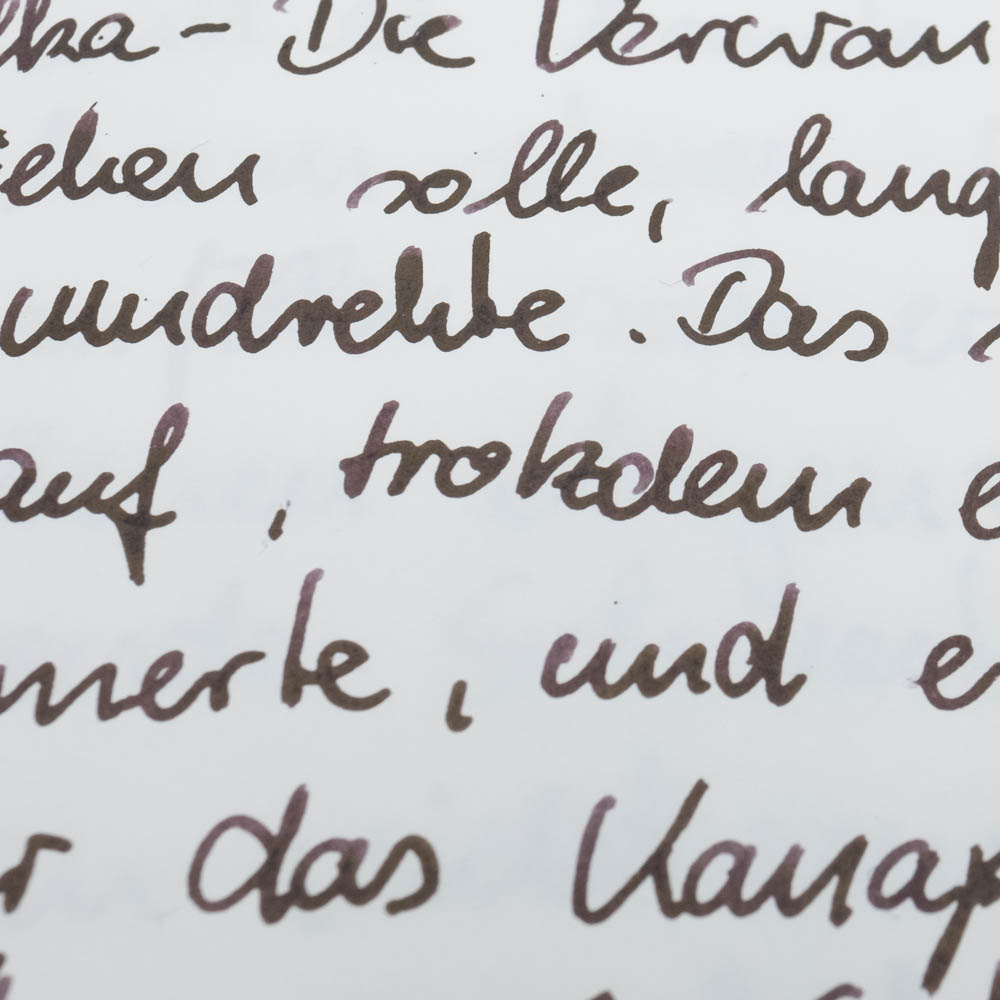 fka - Die Verwan
iehen solle, lang
umdrehte. Das
auf, trotzdem e
merte, und er
r das Kanap